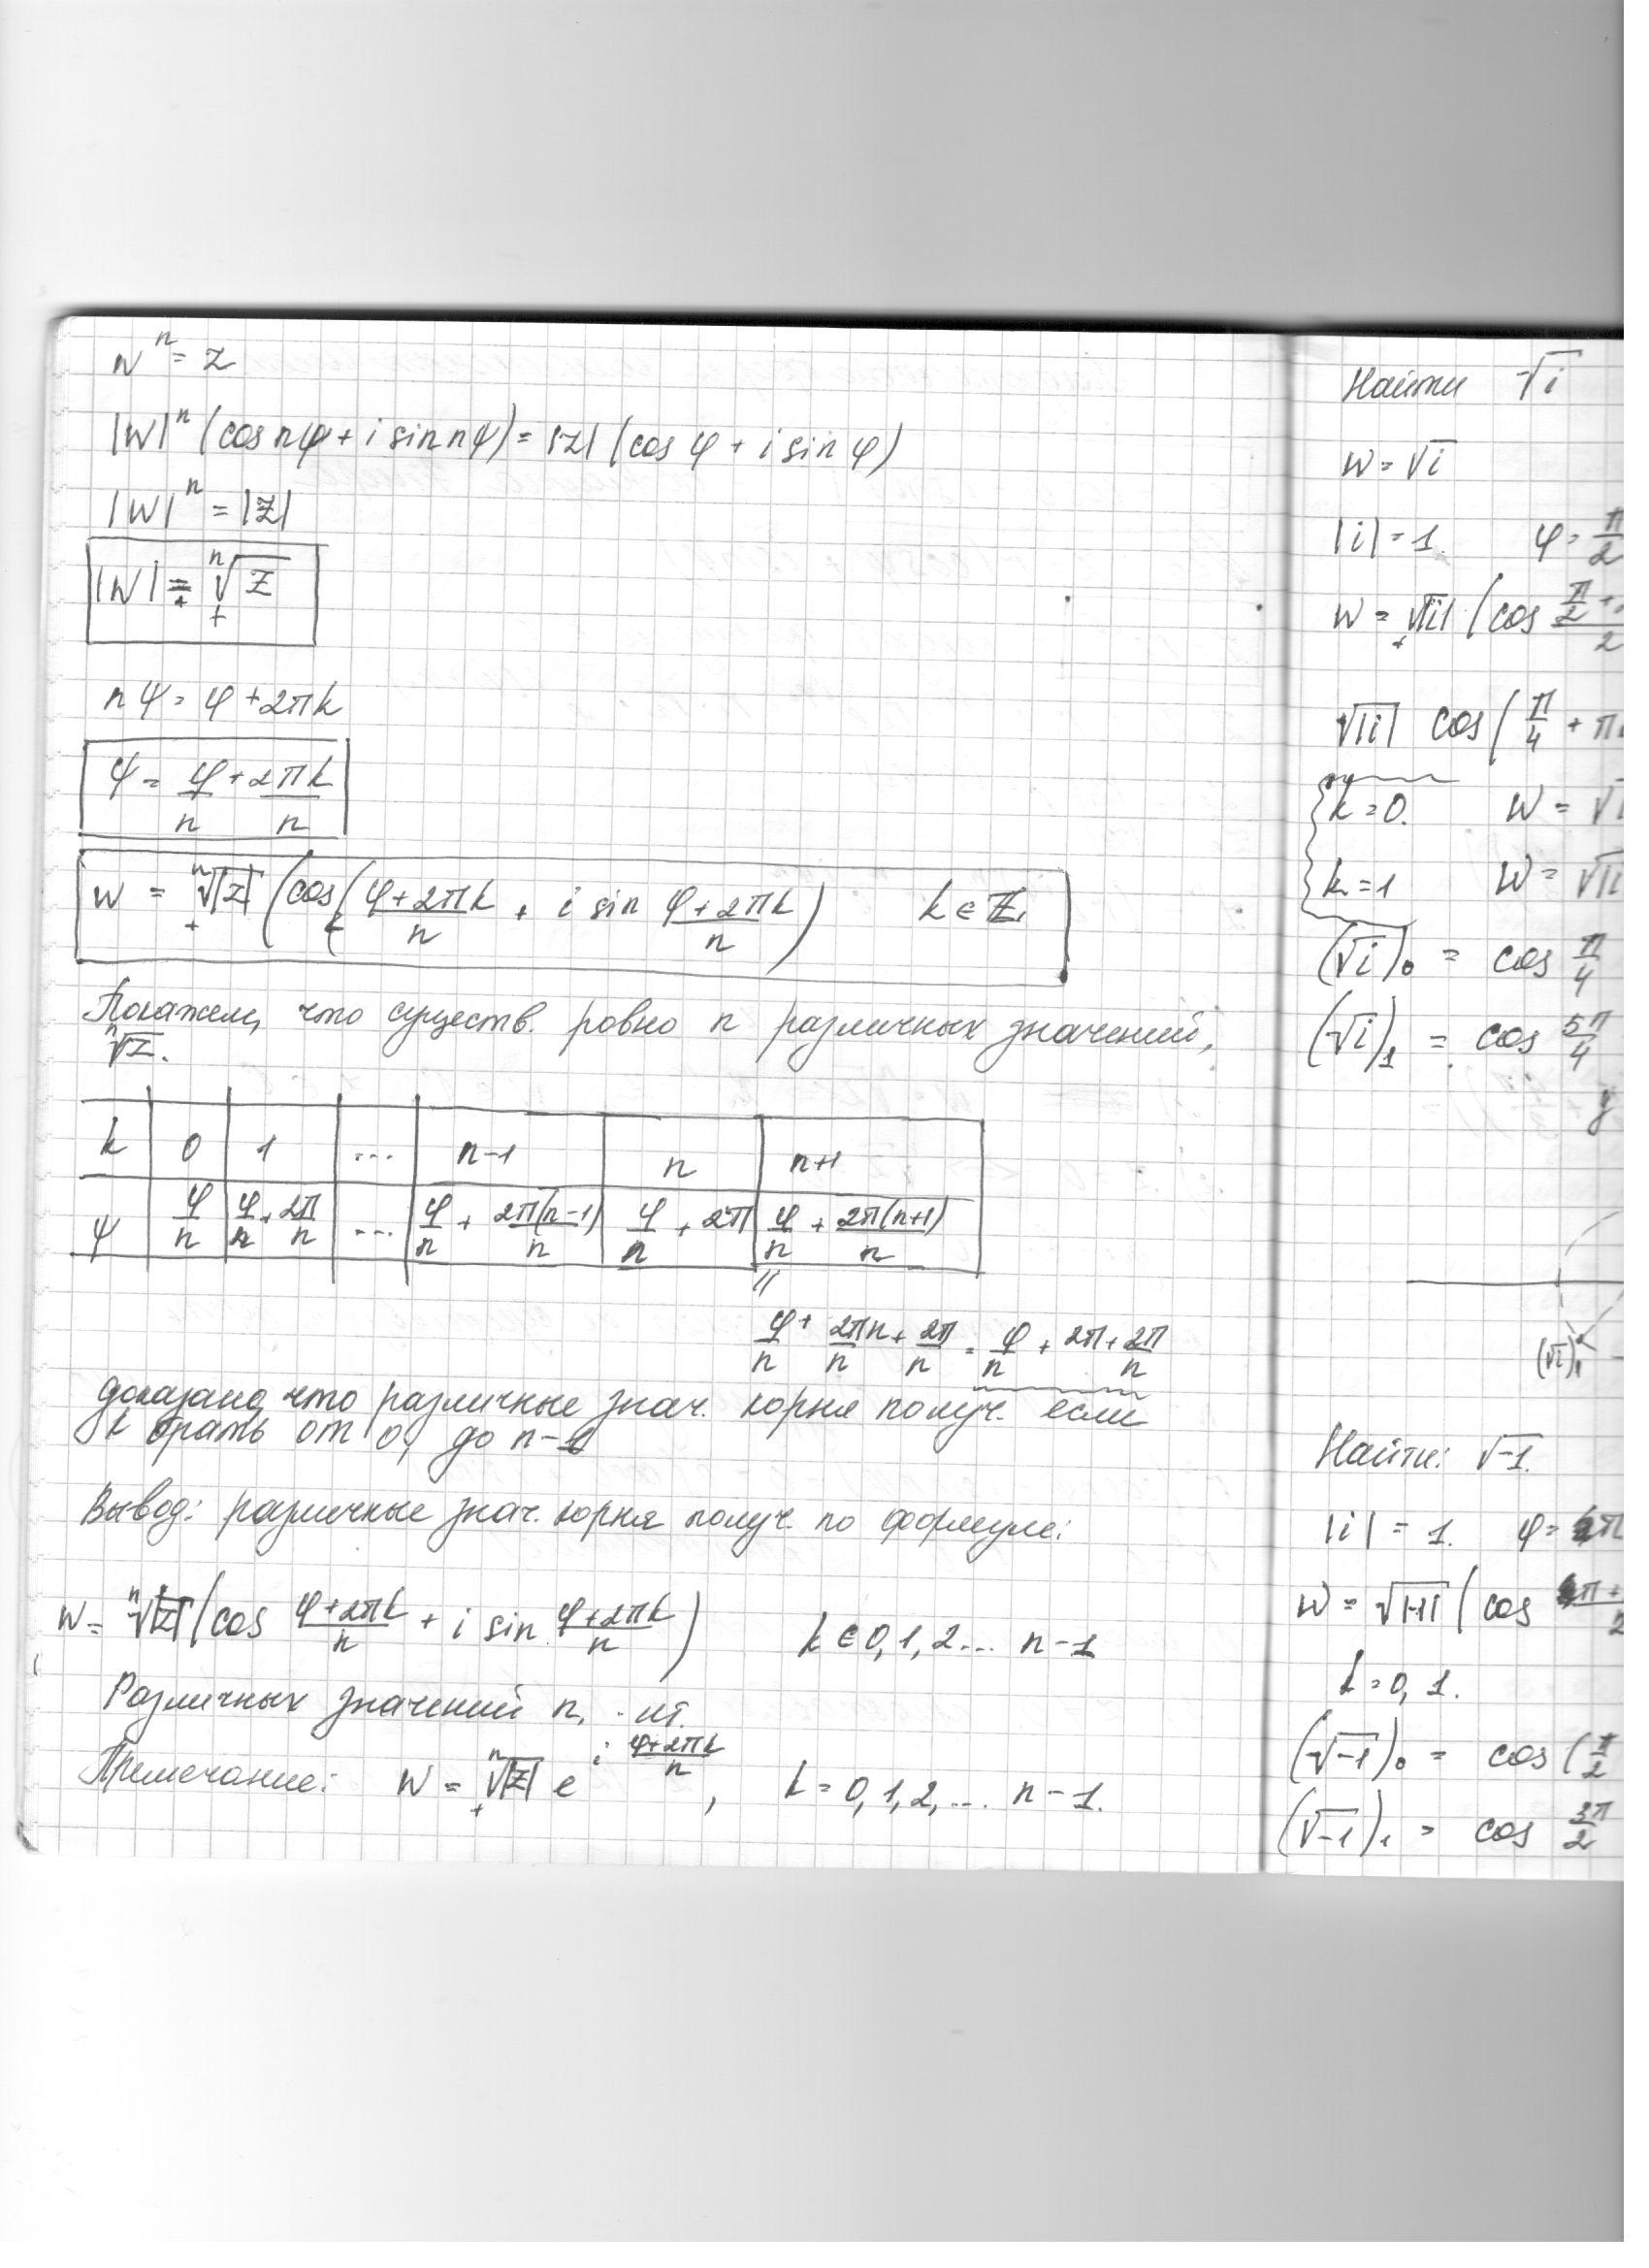 wⁿ = z
|w|ⁿ (cos nψ + i sin nψ) = |z| (cos φ + i sin φ)
|w|ⁿ = |z|
|w| = ⁿ√z
+
nψ = φ + 2πk
ψ = φ/n + 2πk/n
w = ⁿ√|z| (cos (φ+2πk)/n + i sin (φ+2πk)/n) k ∈ Z.
+
Покажем, что существ. ровно n различных значений,
ⁿ√z.
k 0 1 ... n-1 n n+1
ψ φ/n φ/n + 2π/n ... φ/n + 2π(n-1)/n φ/n + 2π φ/n + 2π(n+1)/n
||
φ/n + 2πn/n + 2π/n = φ/n + 2π + 2π/n
доказано, что различные знач. корня получ. если
k брать от 0, до n-1
Вывод: различные знач. корня получ. по формуле:
w = ⁿ√|z| (cos (φ+2πk)/n + i sin (φ+2πk)/n) k ∈ 0, 1, 2... n-1
Различных значений n.
Примечание: w = ⁿ√|z| e^(i (φ+2πk)/n), k = 0, 1, 2, ... n-1.
+
Найти √i
w = √i
|i| = 1. φ = π/2
w = √|i| (cos (π/2 +
+ 2
√|i| cos (π/4 + π
k = 0. w = √i
k = 1 w = √|i
(√i)₀ = cos π/4
(√i)₁ = cos 5π/4
y
(√i)₁
Найти: √-1.
|i| = 1. φ = π
w = √|-1| (cos π+
2
k = 0, 1.
(√-1)₀ = cos (π/2
(√-1)₁ = cos 3π/2